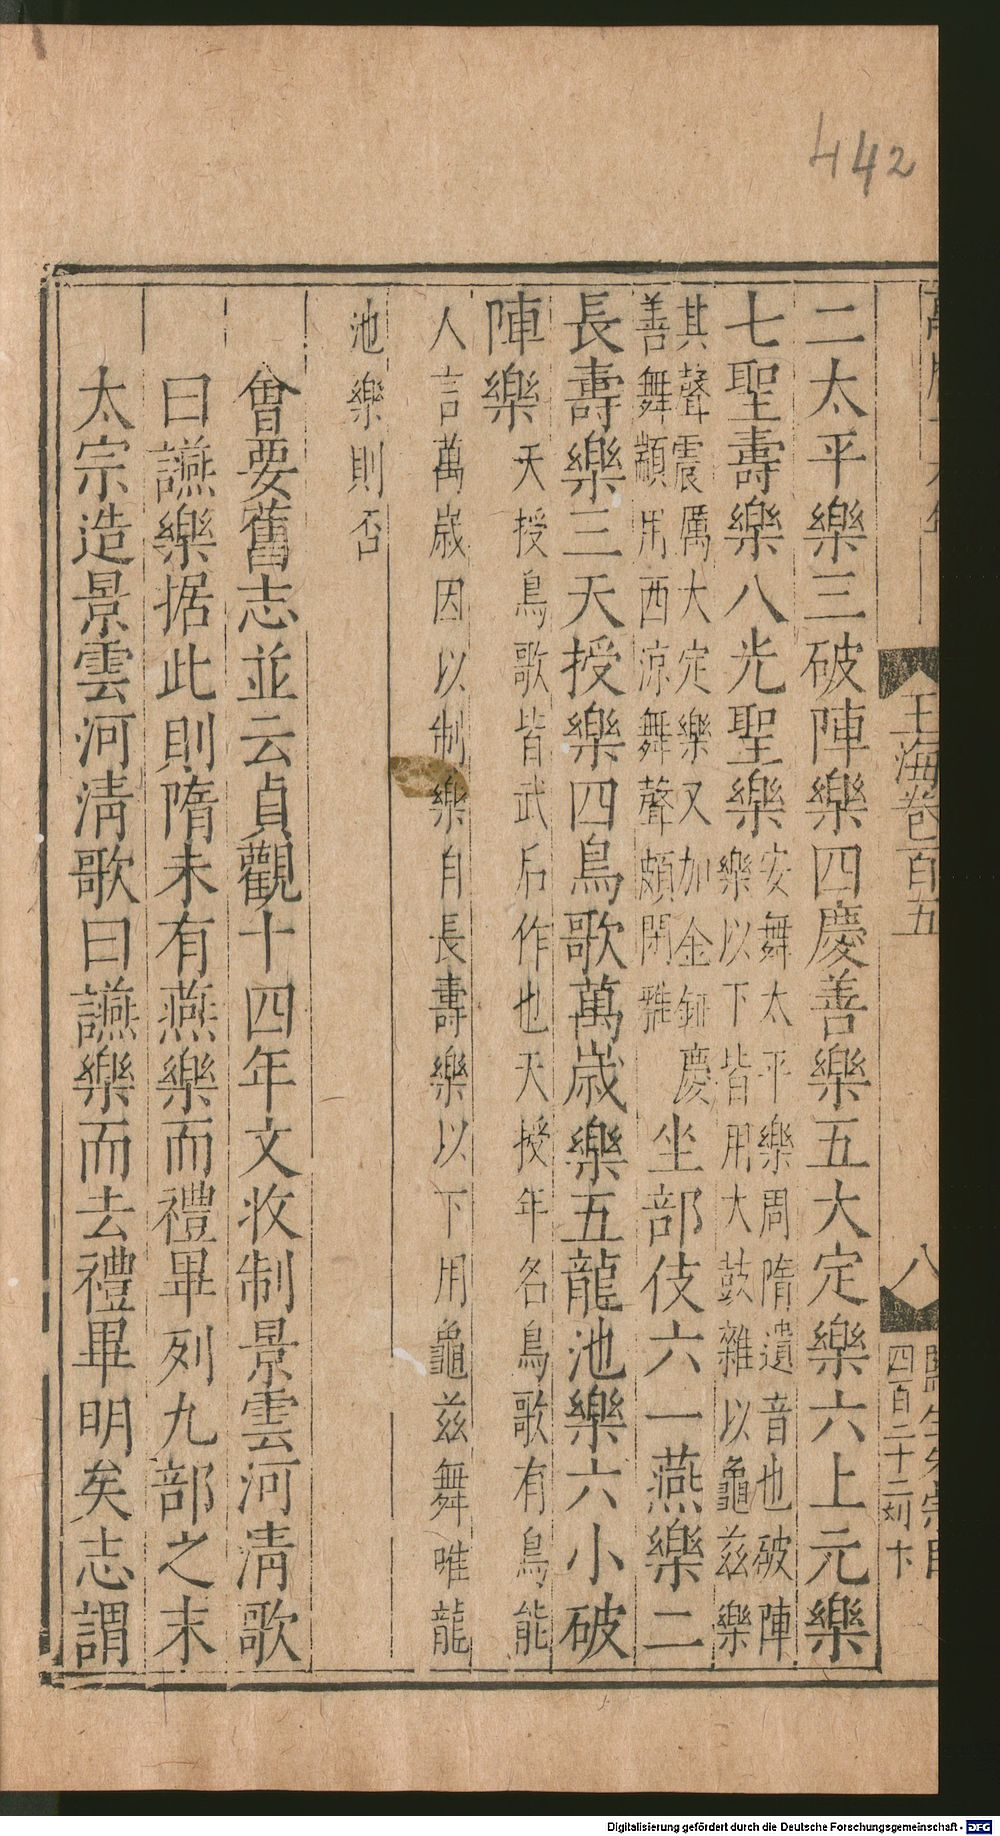 442
玉海卷百五
八
四百二十二刘卞
二太平樂三破陣樂四慶善樂五大定樂六上元樂
七聖壽樂八光聖樂
安舞太平樂周隋遺音也破陣
樂以下皆用大鼓雜以龜兹樂
其聲震厲大定樂又加金鉦慶
善舞顓用西涼舞聲頗閑雅
坐部伎六一燕樂二
長壽樂三天授樂四鳥歌萬歲樂五龍池樂六小破
陣樂
天授鳥歌皆武后作也天授年名鳥歌有鳥能
人言萬歲因以制樂自長壽樂以下用龜兹舞唯龍
池樂則否
會要舊志並云貞觀十四年文收制景雲河清歌
曰讌樂据此則隋未有燕樂而禮畢列九部之末
太宗造景雲河清歌曰讌樂而去禮畢明矣志謂
Digitalisierung gefördert durch die Deutsche Forschungsgemeinschaft - DFG